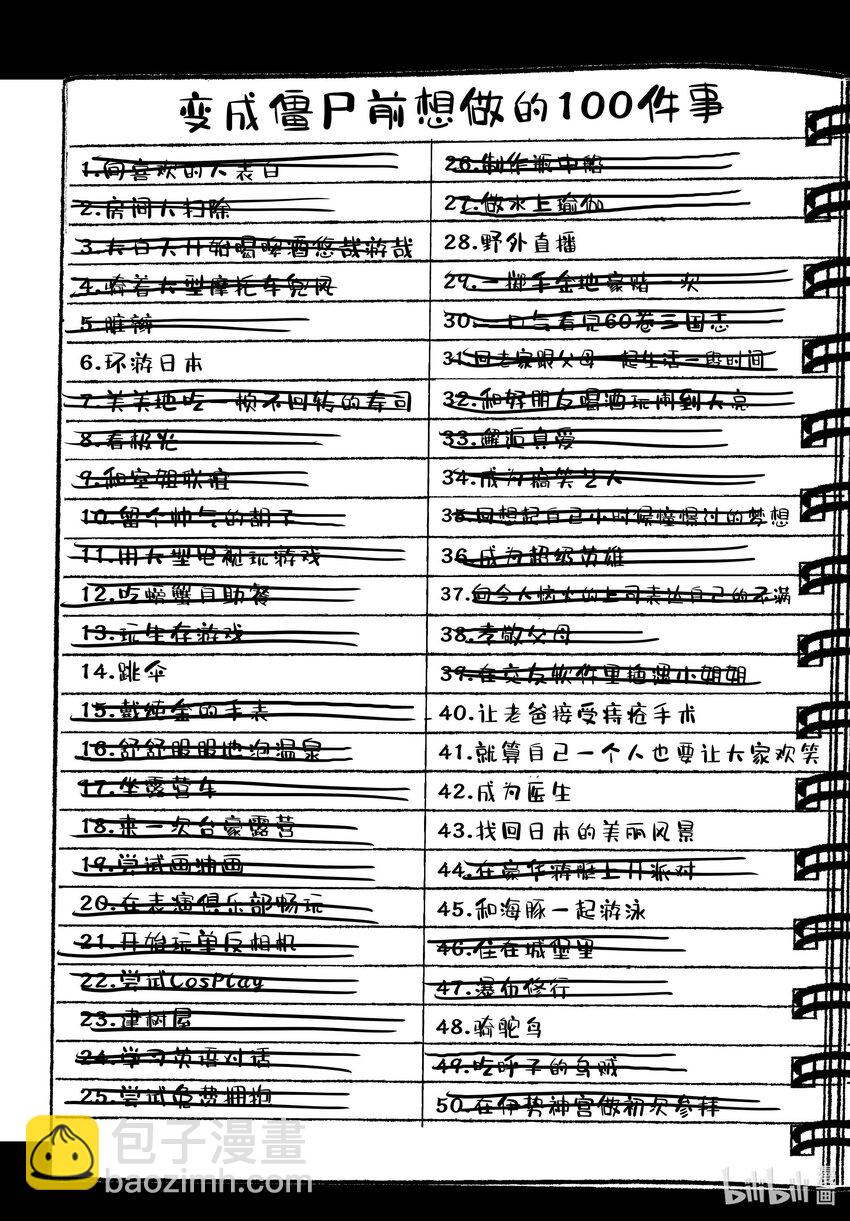 变成僵尸前想做的100件事
1.向喜欢的人表白
2.房间大扫除
3.大白天开始喝啤酒悠哉游哉
4.骑着大型摩托车兜风
5.脏辫
6.环游日本
7.美美地吃一顿不回转的寿司
8.看极光
9.和空姐联谊
10.留个帅气的胡子
11.用大型电视玩游戏
12.吃螃蟹自助餐
13.玩生存游戏
14.跳伞
15.戴纯金的手表
16.舒舒服服地泡温泉
17.坐露营车
18.来一次台豪露营
19.尝试画油画
20.在表演俱乐部畅玩
21.开始玩单反相机
22.尝试CosPlay
23.建树屋
24.学习英语对话
25.尝试免费拥抱
26.制作瓶中船
27.做水上瑜伽
28.野外直播
29.一掷千金地豪赌一次
30.一口气看完60卷三国志
31.回老家跟父母一起生活一段时间
32.和好朋友喝酒玩闹到天亮
33.邂逅真爱
34.成为搞笑艺人
35.回想起自己小时候憧憬过的梦想
36.成为超级英雄
37.向令人恼火的上司表达自己的不满
38.孝敬父母
39.在交友软件里搭讪小姐姐
40.让老爸接受痔疮手术
41.就算自己一个人也要让大家欢笑
42.成为医生
43.找回日本的美丽风景
44.在豪华游艇上开派对
45.和海豚一起游泳
46.住在城堡里
47.瀑布修行
48.骑鸵鸟
49.吃呼子的乌贼
50.在伊势神宫做初次参拜
包子漫畫
baozimh.com
bilibili漫画